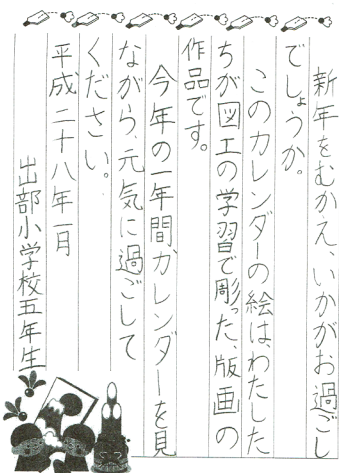 新年をむかえ、いかがお過ごし
でしょうか。
このカレンダーの絵は、わたした
ちが図工の学習で彫った、版画の
作品です。
今年の一年間、カレンダーを見
ながら、元気に過ごして
ください。
平成二十八年一月
出部小学校五年生